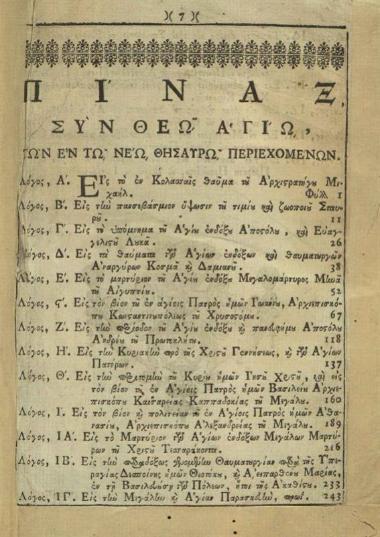 )( 7 )(
ΠΙΝΑΞ
ΣΥΝ ΘΕΩ ΑΓΙΩ,
ΤΩΝ ΕΝ ΤΩ ΝΕΩ ΘΗΣΑΥΡΩ ΠΕΡΙΕΧΟΜΕΝΩΝ.
Λόγος, Α'. Εἰς τὸ ἐν Κολασσαῖς θαῦμα τοῦ Ἀρχιστρατήγου Μι-
χαήλ. Φύλλ. 1
Λόγος, Β'. Εἰς τὴν παγσεβάσμιον ὕψωσιν τοῦ τιμίου καὶ ζωοποιοῦ Σταυ-
ροῦ. 11
Λόγος, Γ'. Εἰς τὸ ὑπόμνημα τοῦ Ἁγίου ἐνδόξου Ἀποστόλου, καὶ Εὐαγ-
γελιστοῦ Λουκᾶ. 26
Λόγος, Δ'. Εἰς τὰ θαύματα τῶν Ἁγίων ἐνδόξων καὶ θαυματουργῶν
Ἀναργύρων Κοσμᾶ καὶ Δαμιανοῦ. 38
Λόγος, Ε'. Εἰς τὸ μαρτύριον τοῦ Ἁγίου ἐνδόξου Μεγαλομάρτυρος Μηνᾶ
τοῦ Αἰγυπτίου. 52
Λόγος, ς'. Εἰς τὸν βίον τοῦ ἐν ἁγίοις Πατρὸς ἡμῶν Ἰωάννου, Ἀρχιεπισκό-
που Κωνσταντινουπόλεως τοῦ Χρυσοστόμου. 67
Λόγος, Ζ'. Εἰς τὴν περίοδον τοῦ Ἁγίου ἐνδόξου καὶ πανευφήμου Ἀποστόλου
Ἀνδρέου τοῦ Πρωτοκλήτου. 118
Λόγος, Η'. Εἰς τὴν Κυριακὴν πρὸ τῆς Χριστοῦ Γεννήσεως, καὶ τῶν Ἁγίων
Πατέρων. 137
Λόγος, Θ'. Εἰς τὴν περιτομὴν τοῦ Κυρίου ἡμῶν Ἰησοῦ Χριστοῦ, καὶ εἰς
τὸν βίον τοῦ ἐν Ἁγίοις Πατρὸς ἡμῶν Βασιλείου Ἀρχιε-
πισκόπου Καισαρείας Καππαδοκίας τοῦ Μεγάλου. 160
Λόγος, Ι'. Εἰς τὸν βίον καὶ πολιτείαν τοῦ ἐν Ἁγίοις Πατρὸς ἡμῶν Ἀθα-
νασίου, Ἀρχιεπισκόπου Ἀλεξανδρείας τοῦ Μεγάλου. 189
Λόγος, ΙΑ'. Εἰς τὸ Μαρτύριον τῶν Ἁγίων ἐνδόξων Μεγάλων Μαρτύ-
ρων τοῦ Χριστοῦ Τεσσαράκοντα. 216
Λόγος, ΙΒ'. Εἰς τὴν παράδοξον γενομένην Θαυματουργίαν παρὰ τῆς Ὑπε-
ραγίας Δεσποίνης ἡμῶν Θεοτόκου, καὶ Ἀειπαρθένου Μαρίας,
ἐν τῇ Βασιλευούσῃ τῶν Πόλεων, ἤτοι τῆς Ἀκαθίστου. 233
Λόγος, ΙΓ'. Εἰς τὴν Μεγάλην καὶ Ἁγίαν Παρασκευὴν, πρωΐ. 243